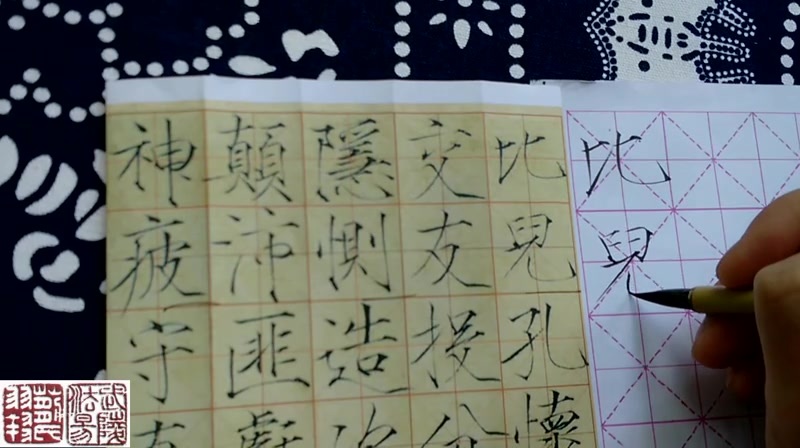 比兒
比兒孔懷
交友投分
隱惻造次
顛沛匪虧
神疲守